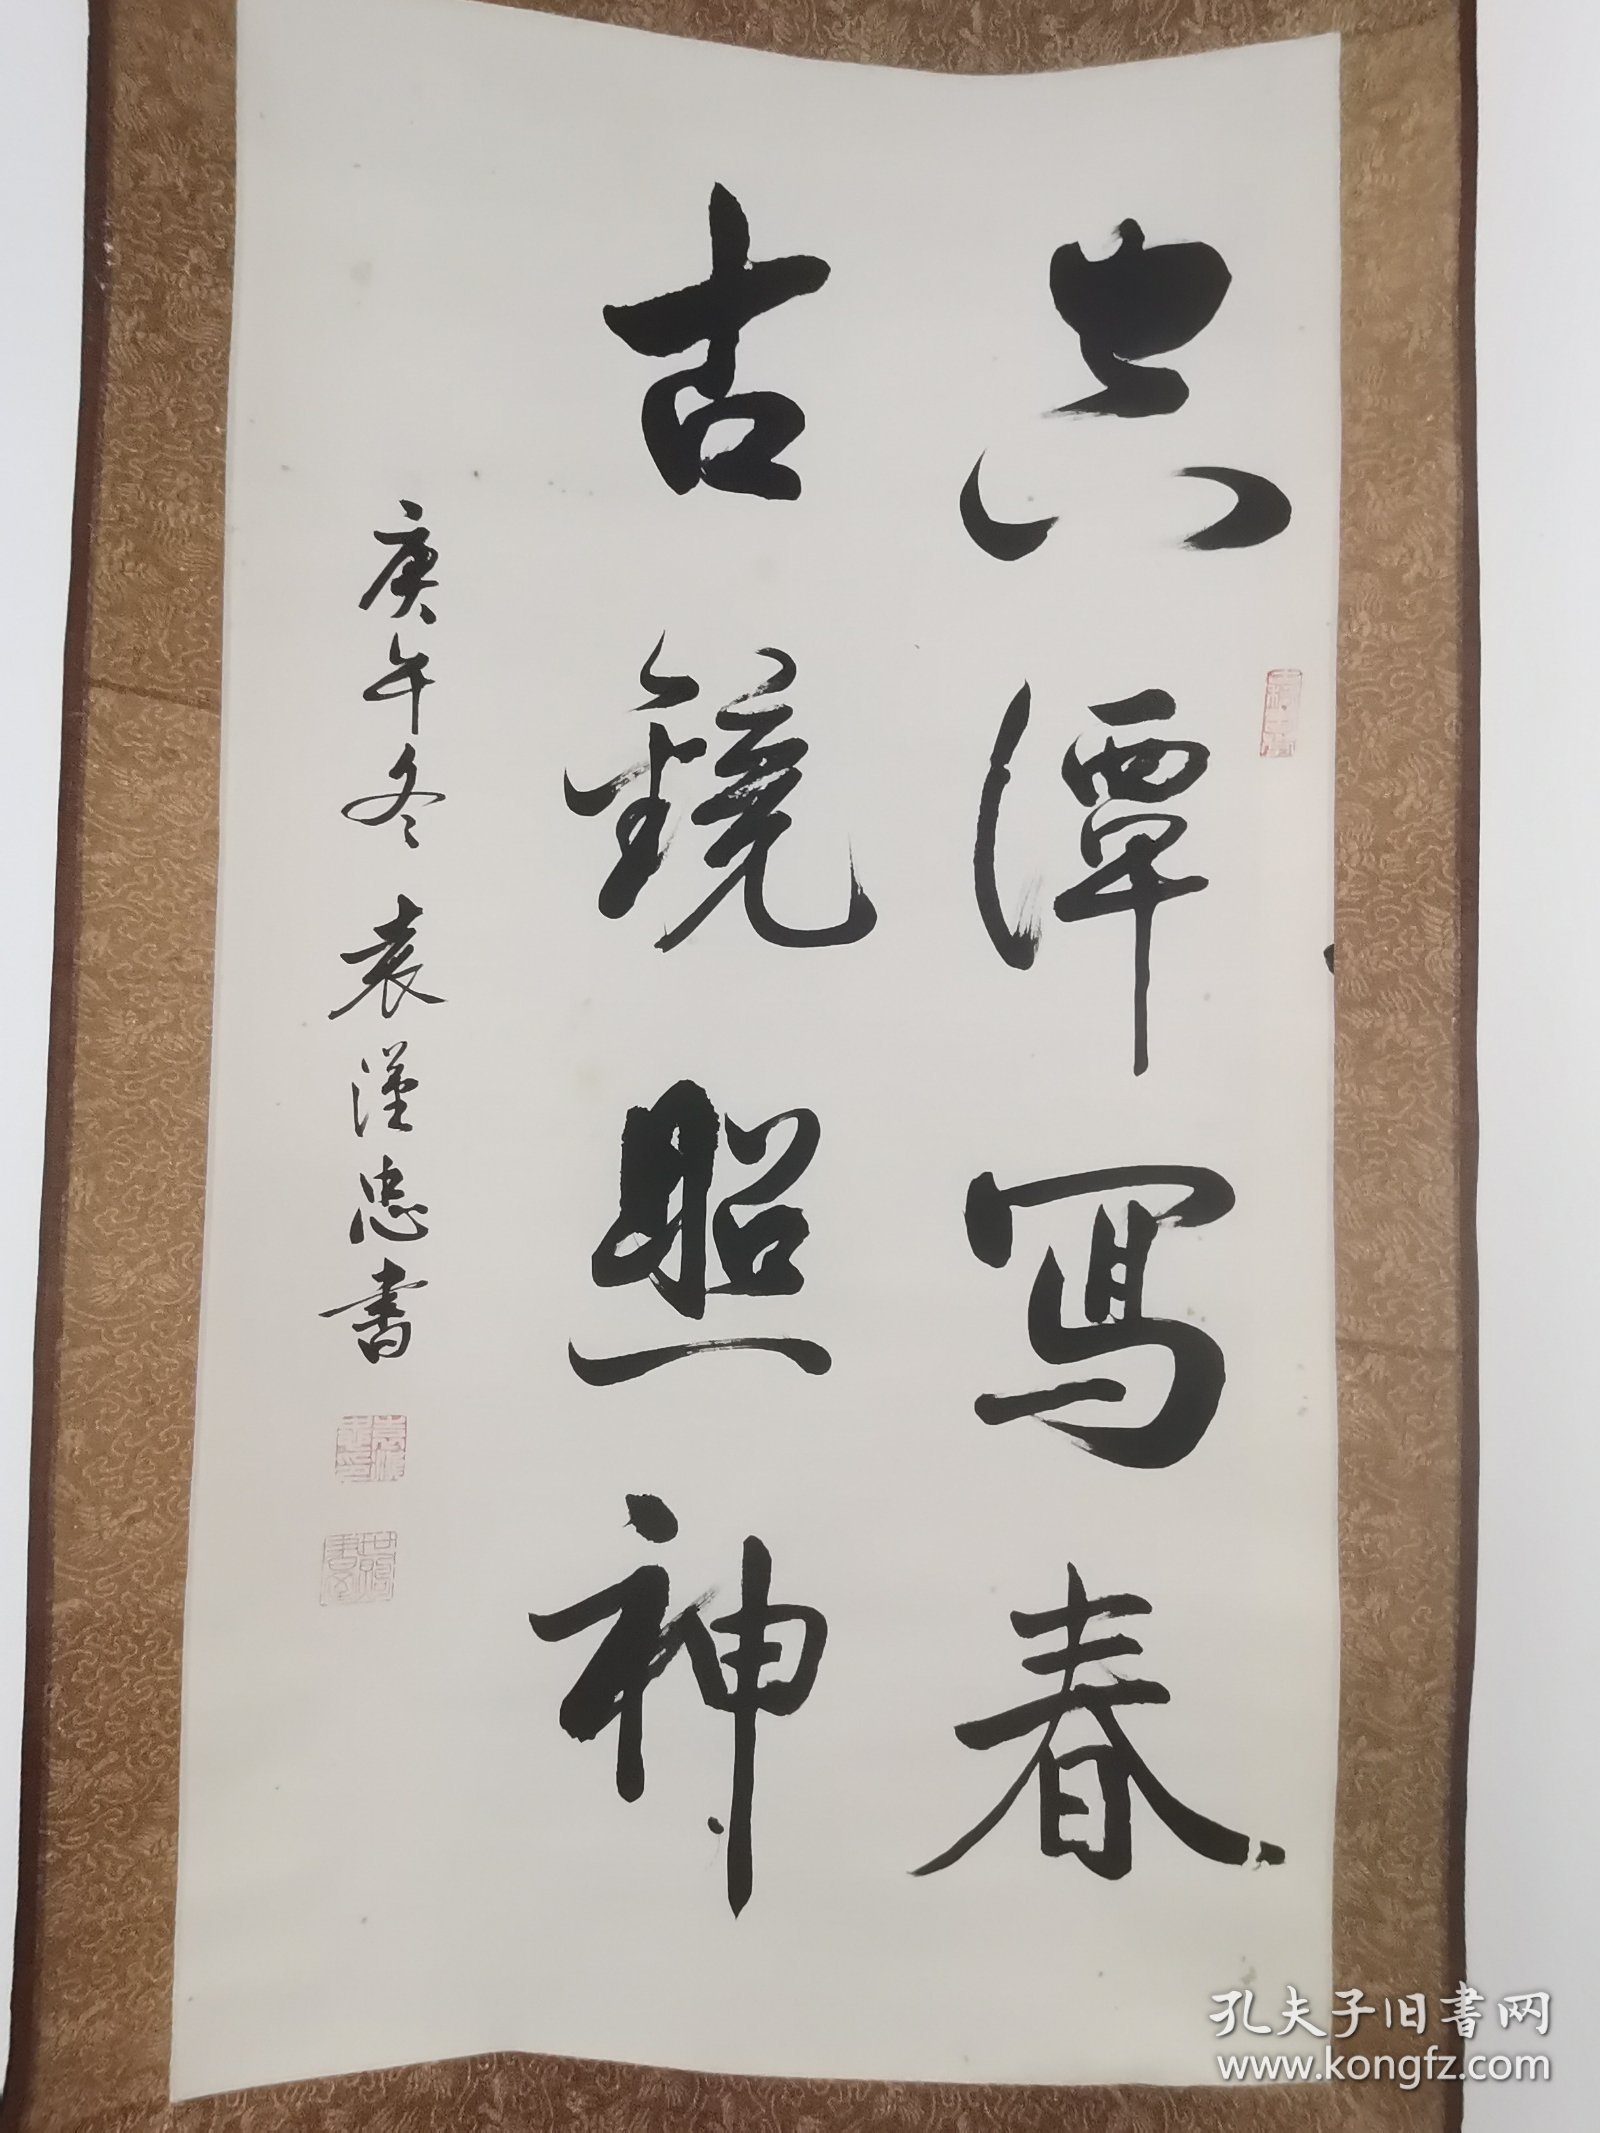 空潭寫春
古鏡照神
庚午冬袁漢忠書
孔夫子旧书网
www.kongfz.com